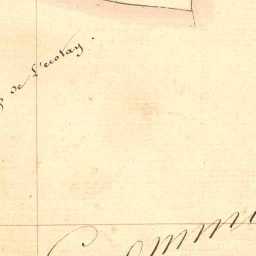 de L'ecotay.
Commun